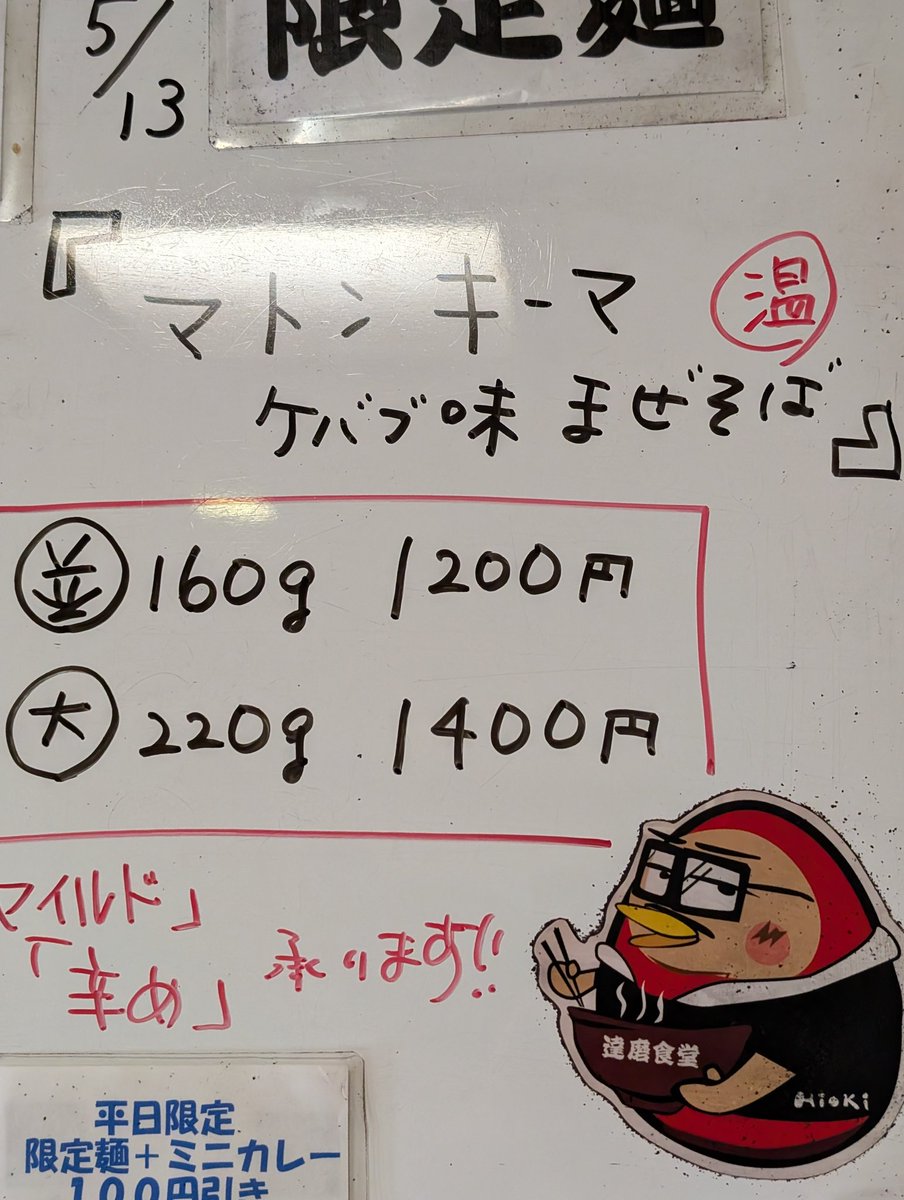 5/13
限定麺
『マトンキーマ 温
ケバブ味 まぜそば』
160g 1200円
大 220g 1400円
マイルド」
「辛め」承ります!!
達磨食堂
HioKi
平日限定
限定麺+ミニカレー
100円引き